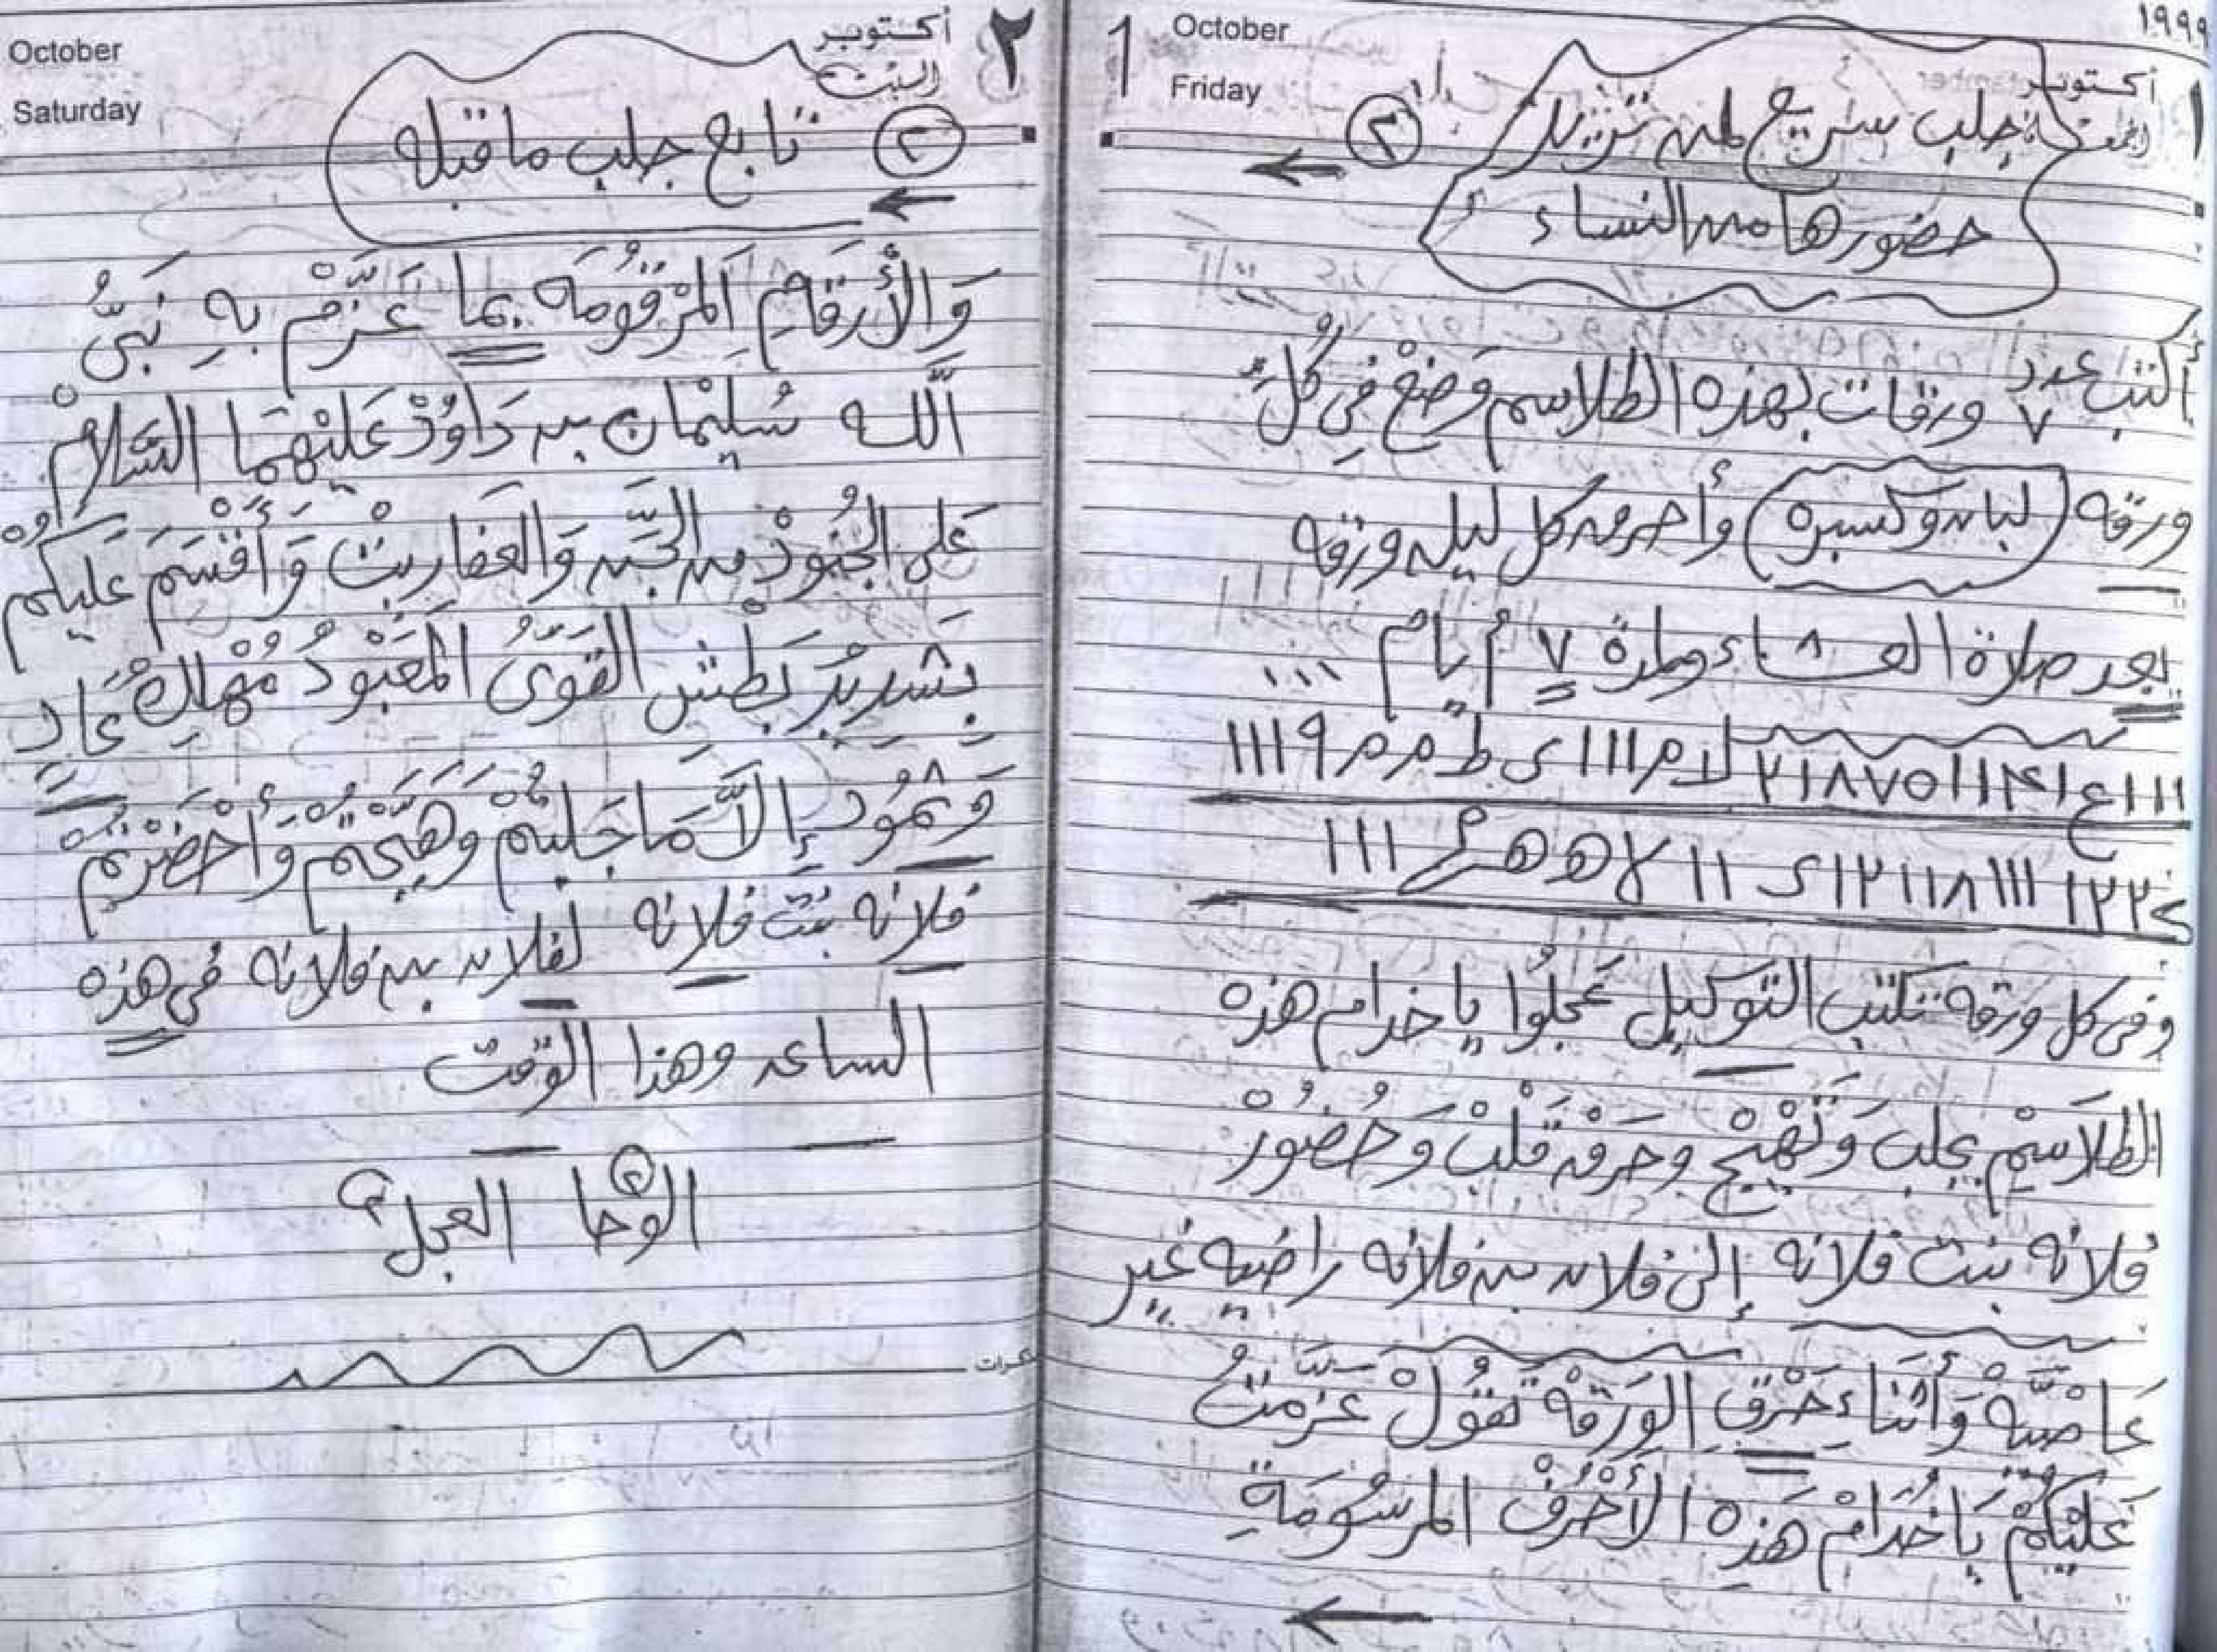 ١٩٩٩
١ أكتوبر الجمعة
1 October
Friday
جلب سريع لمن تريد ②
حضورها من النساء
أكتب عدد ٧ ورقات بهذه الطلاسم وضع في كل
ورقه (لبان وكسبره) وأحرق كل ليله ورقه
بعد صلاة العشاء ولمدة ٧ أيام
١١١ع١٤١١٥٧٨١٢ لا م ١١١ ى ط م م ١١١٩
١٢٢ ١١١ ٨١١٢١ ١١ لا ه ه ١١١
وفى كل ورقه تكتب التوكيل عجلوا يا خدام هذه
الطَلاَسِمْ بجلب وَتَهْيْجْ وحرق قَلْبْ وَحُضُورْ
فلانه بنت فلانه إلى فلان بن فلانه راضيه غير
عَاصْيَّهْ وَأَثْنَاءِ حَرْقِ الوَرَقْهْ تَقُولْ عَزَمْتُ
عَلَيْكُمْ يَاخُدَامْ هَذِه الأَحْرُفْ المَرسُومَةِ
٢ أكتوبر السبت
October
Saturday
② تابع جلب ما قبله
وَالأَرقَامِ المَرْقُومَه بما عَزَّمْ بِهِ نَبىُّ
اللَّه سُليْمان بن دَاوُدْ عَليْهمَا السَّلامْ
عَلى الجُنُودْ من الجِّن وَالعَفاريتْ وَأَقْسَمَ عَليكُمْ
بَشديدْ بَطْش القَوّىُ المَعْبُودْ مُهْلِكْ عَادِ
وَثمُود إلاَّ مَا جَلبتُمْ وهَيَّجْتُمْ وَأَحْضَرْتُمْ
فلانه بنت فلانه لفلان بن فلانه فى هذه
الساعه وهذا الوقت
الوحا ② العجل ②